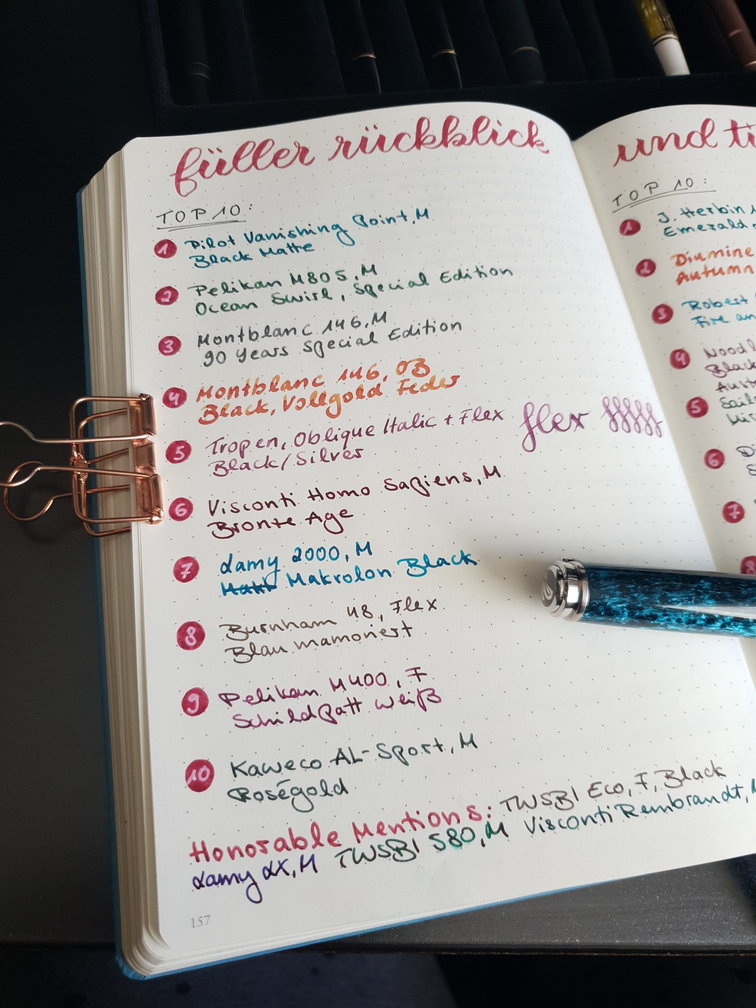 füller rückblick
TOP 10:
1 Pilot Vanishing Point, M
Black Matte
2 Pelikan M805, M
Ocean Swirl, Special Edition
3 Montblanc 146, M
90 Years Special Edition
4 Montblanc 146, OB
Black, Vollgold Feder
5 Tropen, Oblique Italic + Flex
Black/Silver
flex
6 Visconti Homo Sapiens, M
Bronze Age
7 Lamy 2000, M
Makrolon Black
8 Burnham 48, Flex
Blau mamoriert
9 Pelikan M400, F
Schildpatt weiß
10 Kaweco AL-Sport, M
Roségold
Honorable Mentions: TWSBI Eco, F, Black
Lamy LX, M TWSBI 580, M Visconti Rembrandt,
157
und
TOP 10:
1 J. Herbin
Emerald
2 Diamine
Autumn
3 Robert
Fire
4
Black
5
6
7
8